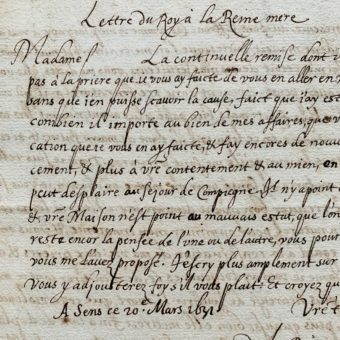 Lettre du Roy à la Reine mere
Madame La continuelle remise dont v
pas à la priere que ie vous ay faicte de vous en aller en
sans que i'en puisse scavoir la cause, faict que i'ay est
combien il importe au bien de mes affaires, que v
cation que ie vous en ay faicte, & fay encores de nouv
cement, & plus à vre contentement & au mien, en
peut desplaire au sejour de Compiegne. Il n'y a point
& vre Maison n'est point au mauvais estat, que l'on
reste encor la pensée de l'une ou de l'autre, vous pour
vous me l'avez proposé. J'escry plus amplement sur
vous y adjousterez foy s'il vous plait. et croyez qu
A Sens ce 20.e Mars 1631 Vre t